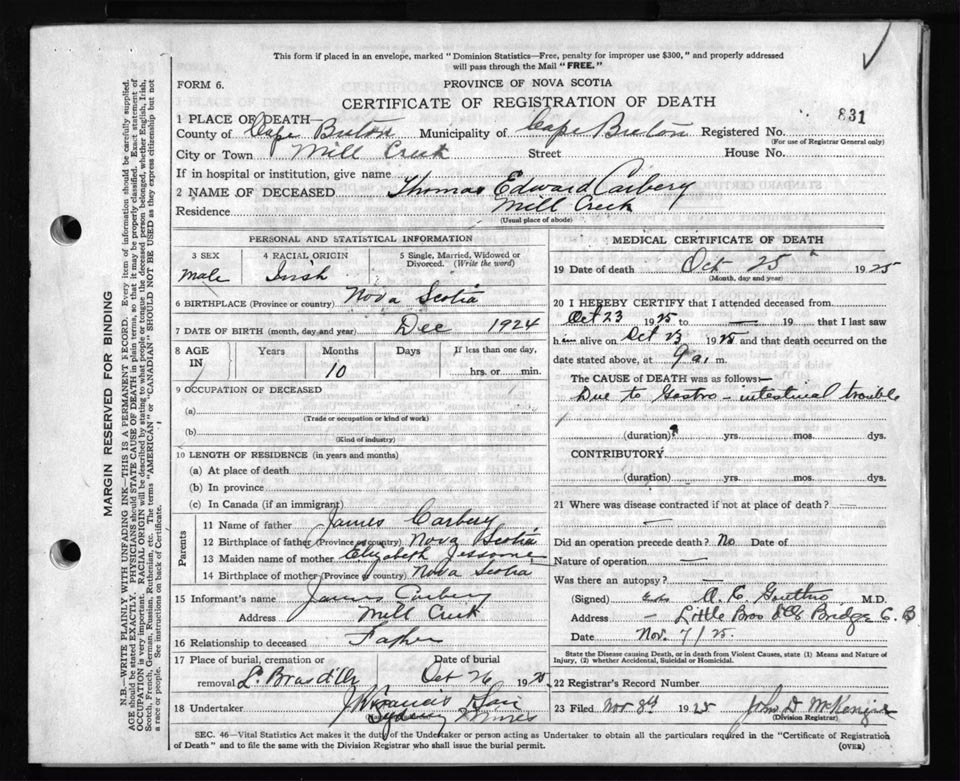 This form if placed in an envelope, marked "Dominion Statistics—Free, penalty for improper use $300," and properly addressed
will pass through the Mail "FREE."
FORM 6.
PROVINCE OF NOVA SCOTIA
CERTIFICATE OF REGISTRATION OF DEATH
831
1 PLACE OF DEATH—
County of Cape Breton Municipality of Cape Breton Registered No.
(For use of Registrar General only)
City or Town Mill Creek Street House No.
If in hospital or institution, give name
2 NAME OF DECEASED Thomas Edward Carbery
Residence Mill Creek
(Usual place of abode)
PERSONAL AND STATISTICAL INFORMATION
3 SEX male
4 RACIAL ORIGIN Irish
5 Single, Married, Widowed or Divorced. (Write the word)
6 BIRTHPLACE (Province or country) Nova Scotia
7 DATE OF BIRTH (month, day and year) Dec 1924
8 AGE IN Years Months 10 Days If less than one day, hrs. or min.
9 OCCUPATION OF DECEASED
(a)
(Trade or occupation or kind of work)
(b)
(Kind of industry)
10 LENGTH OF RESIDENCE (in years and months)
(a) At place of death
(b) In province
(c) In Canada (if an immigrant)
Parents
11 Name of father James Carbery
12 Birthplace of father (Province or country) Nova Scotia
13 Maiden name of mother Elizabeth
14 Birthplace of mother (Province or country) Nova Scotia
15 Informant's name James Carbery
Address Mill Creek
16 Relationship to deceased Father
17 Place of burial, cremation or removal L. Bras d'Or Date of burial Oct 26 1925
18 Undertaker
Sydney Mines
MEDICAL CERTIFICATE OF DEATH
19 Date of death Oct 25 1925
(Month, day and year)
20 I HEREBY CERTIFY that I attended deceased from
Oct 23 1925 to — 19 that I last saw
him alive on Oct 23 1925 and that death occurred on the
date stated above, at 9 a. m.
The CAUSE of DEATH was as follows—
Due to Gastro-intestinal trouble
(duration) ? yrs. mos. dys.
CONTRIBUTORY
(duration) yrs. mos. dys.
21 Where was disease contracted if not at place of death?
—
Did an operation precede death? No Date of
Nature of operation —
Was there an autopsy? —
(Signed) M.D.
Address Little Bras d'Or Bridge C. B
Date Nov. 7/25.
State the Disease causing Death, or in death from Violent Causes, state (1) Means and Nature of
Injury, (2) whether Accidental, Suicidal or Homicidal.
22 Registrar's Record Number
23 Filed Nov 8th 1925 John D McKenzie
(Division Registrar)
SEC. 46—Vital Statistics Act makes it the duty of the Undertaker or person acting as Undertaker to obtain all the particulars required in the "Certificate of Registration
of Death" and to file the same with the Division Registrar who shall issue the burial permit.
(OVER)
MARGIN RESERVED FOR BINDING
N.B.—WRITE PLAINLY WITH UNFADING INK—THIS IS A PERMANENT RECORD. Every item of information should be carefully supplied.
AGE should be stated EXACTLY. PHYSICIANS should STATE CAUSE OF DEATH in plain terms, so that it may be properly classified. Exact statement of
OCCUPATION is very important. RACIAL ORIGIN will be described by stating to what people or tongue the deceased person belonged, whether English, Irish,
Scotch, French, German, Russian, Ruthenian, etc. The terms "AMERICAN" or "CANADIAN" SHOULD NOT BE USED as they express citizenship but not
a race or people. See instructions on back of Certificate.